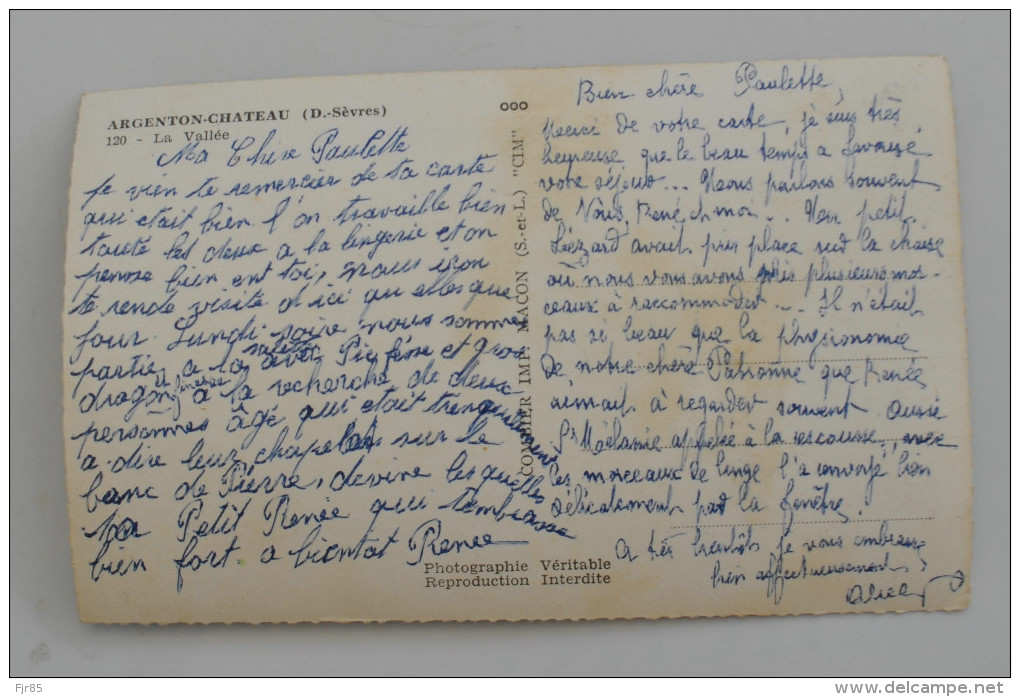 ARGENTON-CHATEAU (D.-Sèvres)
120 - La Vallée
Ma Chère Paulette
je vien te remercier de ta carte
qui etait bien l'on travaille bien
toute les deux a la lingerie et on
pense bien ent toi, nous iron
te rende visite d'ici quelles que
jour. Lundi soire nous somme
partie a la avec Pie et gros
dragon a la recherche de deux
personnes âgé qui etait trenquilement
a dire leur chapelet sur le
banc de Pierre, devine lesquelles
Ta Petit Renée qui t'embrasse
bien fort a bientot Renee
COMBIER IMP. MACON (S.-et-L.) "CIM"
Photographie Véritable
Reproduction Interdite
Bien chère Paulette,
Merci de votre carte, je suis très
heureuse que le beau temps a favorisé
votre séjour... Nous parlons souvent
de Vous, René et moi... Mon petit
Lézard avait pris place sur la chaise
où nous vous avons mis plusieurs mor-
ceaux à raccommoder... Il n'était
pas si beau que la physionomie
de notre chère Patronne que Renée
aimait à regarder souvent. Aussi
Sr Mélanie appelée à la rescousse, avec
les morceaux de linge l'a envoyé bien
délicatement par la fenêtre.
A très bientôt je vous embrasse
bien affectueusement
Fjr85
www.delcampe.net